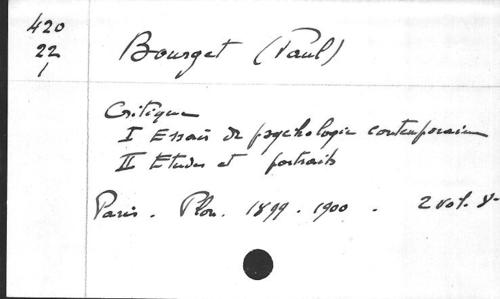 420
22
1
Bourget (Paul)
Critique
I Essais de psychologie contemporaine
II Etudes et portraits
Paris. Plon. 1899-1900. 2 vol. 8-